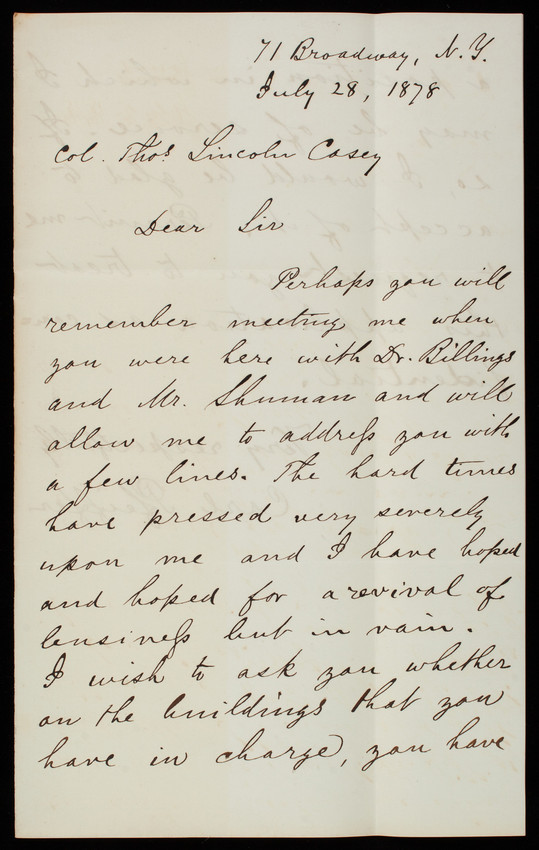 71 Broadway, N.Y.
July 28, 1878
Col. Thos Lincoln Casey
Dear Sir
Perhaps you will
remember meeting me when
you were here with Dr. Billings
and Mr. Shuman and will
allow me to address you with
a few lines. The hard times
have pressed very severely
upon me and I have hoped
and hoped for a revival of
business but in vain.
I wish to ask you whether
on the buildings that you
have in charge, you have